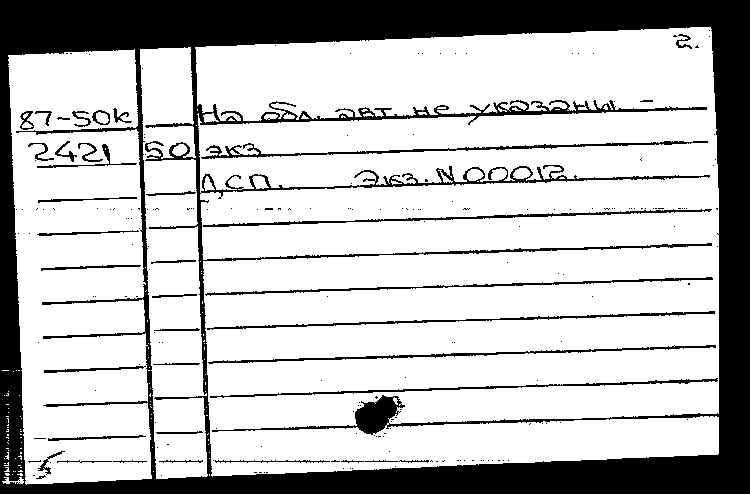 2.
87-50к На обл. авт. не указаны. -
2421 50 экз
ДСП. Экз. N 00012.
5